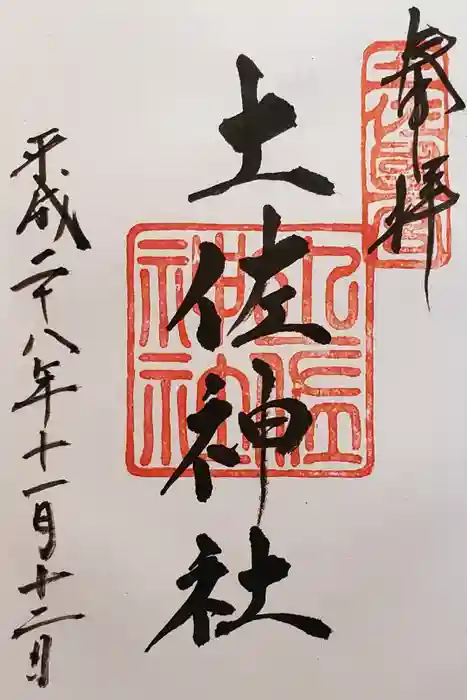 奉拝
土佐神社
平成二十八年十一月十二日